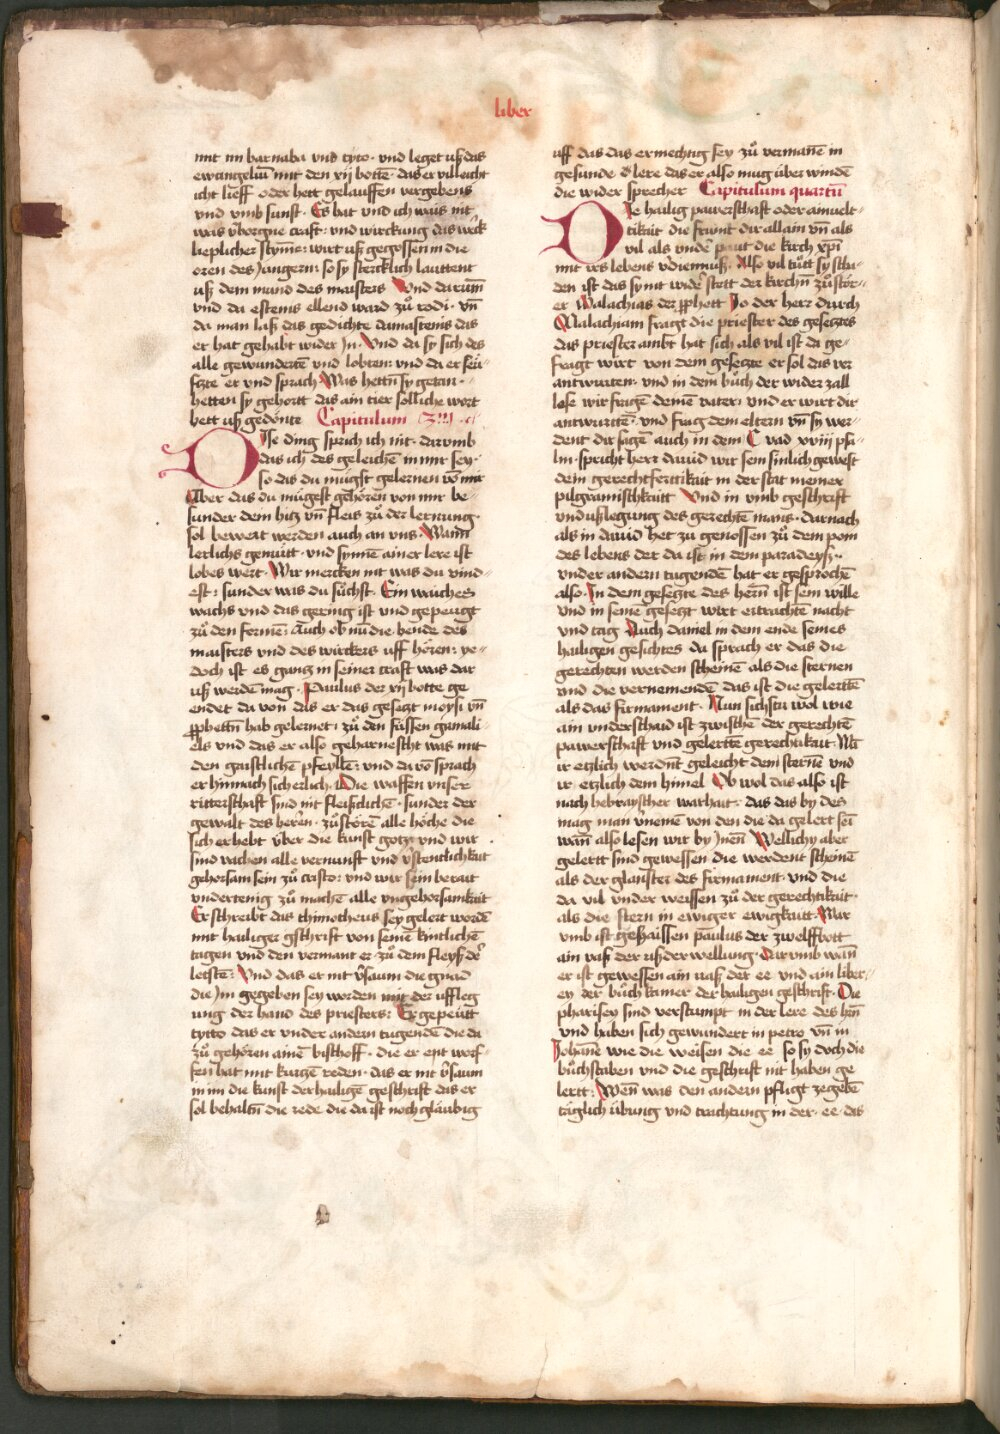 liber
mit im barnaba vnd tyto · vnd leget uß das
ewangeliū mit den xij bottē · das er villeicht
icht lieff oder hett gelauffen vergebens
vnd vmb sunst · Es hat vnd ich wais nit
was v̓borgne craft : vnd wirckung das werck
lieplicher stymme : wirt uß gegossen in die
oren des Jüngern : so sy stercklich lauttent
uß dem mund des maisters Vnd darum̄
vnd da estenis ellend ward zů rodi · vn̄
da man laß das gedichte damastenis das
er hat gehabt wider Jn · Vnd da sy sich des
alle gewundertē vnd lobten : vnd da er seü-
fzte er vnd sprach Was hettn̄ sy getan -
hetten sy gehortt das ain tier solliche wort
hett uß gedönte Capitulum
Dise ding sprich ich nit · darumb
das ich des geleichē in mir sey ·
so das du mügst gelernen vō mir
Aber das du mügest gehören von mir be-
sunder dem hitz vn̄ fleis zů der lernung ·
sol bewert werden auch an vns · Wann
lerlichs gemütt · vnd synnē ainer lere ist
lobes wert · Wir mercken nit was du vind-
est : sunder was du sůchst · Ein waiches
wachs vnd das gering ist vnd gepeügt
zů den formē : Auch ob nū die hende des
maisters vnd des wirckers uff hören : ye-
doch ist es gantz in seiner craft was dar
uß werdē mag · Paulus der xij botte ge
endet da von das er das gesatzt moysi vn̄
prophettn̄ hab gelernet : zů den füssen gamali-
els vnd das er also geharnescht was mit
den gaistlichē pfeyllē : vnd da vō sprach
er hinnach sicherlich : Die waffen vnser
ritterschaft sind nit fleischlichē · sunder der
gewalt des herren · zůstörē alle höche die
sich erhebt über die kunst gotz : vnd wir
sind vachen alle vernunft vnd v̓stentlichkait
gehorsam sein zů cristo : vnd wir sein berait
vndertenig zů machē alle vngehorsamkait
Er schreibt das thimotheus sey gelert wordē
mit hailiger gschrift von seinē kintlichē
tagen vnd den vermant er · zů dem fleyß d̓
letstē : Vnd das er nit v̓saum die gnad
die Jm gegeben sey worden mit der uffleg
ung der hand des priesters : Er gepeütt
tytto das er vnder andern tugendē die da
zů gehören ainē bischoff · die er ent worf-
fen hat mit kurtzē reden · das er nit v̓saum
in im die kunst der hailigē geschrift das er
sol behaltn̄ die rede die da ist noch gläubig
uff das das er mechtig sey zů vermanē in
gesunde d̓ lere das er also mug über windē
die wider sprecher Capitulum quartū
Die hailig pawerschaft oder ainuelt-
tikait die frumt dir allain vn̄ als
vil als vnd̓ paut die kirch xp̄i
mit irs lebens v̓diennuß · Also vil tůtt sy scha-
den ist das sy nit wid̓ stett der kirchn̄ zůstör-
er Malachias der prophett Jo der herr durch
Malachiam fragt die priester des gesetztes
das priester ambt hat sich als vil ist da ge-
fragt wirt von dem gesetzte er sol das ver
antwurten · vnd in dem bůch der wider zall
lese wir fragē deinē vater : vnd er wirt dir
antwurtē · vnd frag dem eltern vn̄ sy wer-
dent dir sagē auch in dem C vnd xviij psa-
lm · spricht herr dauid wir sein sinlich gewest
dein gerechtfertikait in der stat meiner
pilgramischkaitt Vnd in vmb geschrift
vnd ußlegung des gerechtē mans · darnach
als in dauid het zu genossen zů dem pom
des lebens der da ist in dem paradeyß ·
vnder andern tugendē hat er gesprochē
also · In dem gesetzte des hern̄ ist sein wille
vnd in seinē gesetzt wirt ertrachtē nacht
vnd tag Auch daniel in dem ende seines
hailigen gesichtes da sprach er das die
gerechten werden scheinē als die sternen
vnd die vernemendē das ist die gelerttē
als das firmament · Nun sichstu wol wie
ain vnderschaid ist zwischē der gerechtē
pawerschaft vnd gelerttē gerechtikait · Wā
ir etzlich werdnt geleicht dem sternē vnd
ir etzlich dem himel Ob wol das also ist
nach hebrayscher warhait : das das by des
mag man v̓nemē von den die da gelert sei
wān also lesen wir by Jnen Wellichy aber
gelertt sind gewessen die werdent scheinē
als der glanster des firmament · vnd die
da vil vnder weissen zů der gerechtikait ·
als die stern in ewiger ewigkaitt · War
vmb ist gehaissen paulus der zwelffbott
ain vaß der ußder wellung · Darumb wān
er ist gewessen ain vaß der ee vnd ain liber-
ey der bůch kamer der hailigen geschrift · Die
pharisey sind verstumpt in der lere des hn̄
vnd haben sich gewundert in petro vn̄ in
Johanē wie die weisen die ee so sy doch die
bůchstaben vnd die geschrift nit haben ge
lertt : Wen̄ was den andern pfligt zegebē
täglich übung vnd trachtung in der · ee · das